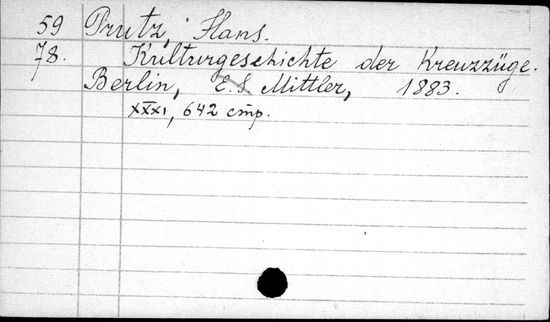 59 Prutz, Hans.
78. Kulturgeschichte der Kreuzzüge.
Berlin, E. S. Mittler, 1883.
XXXI, 642 стр.